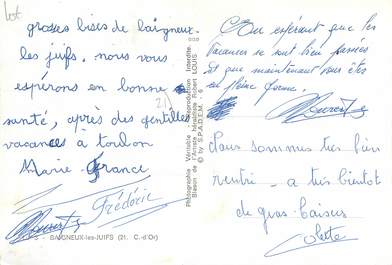 lot
grosses bises de baigneux
les juifs. nous vous
espérons en bonne
santé, après des gentilles
vacances à toulon
Marie France
Frédéric
Laurent
- BAIGNEUX-les-JUIFS (21. C.-d'Or)
21
Photographie Véritable - Reproduction Interdite.
Blason de l'Artiste héraldiste Robert LOUIS
© by S.P.A.D.E.M. - 6
En espérant que les
vacances se sont bien passées
et que maintenant vous êtes
en pleine forme.
Laurent
Nous sommes très bien
rentré - a très bientot
de gros baisers
Colette